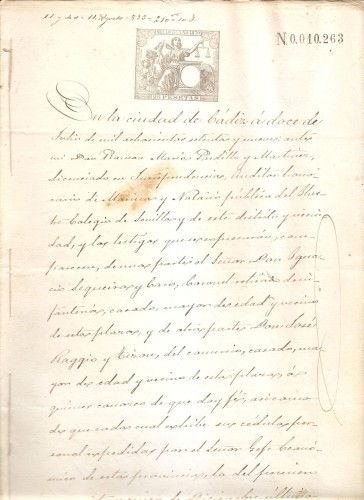 N.0.010.263
PESETAS
En la ciudad de Cádiz á doce de
Julio de mil ochocientos setenta y nueve, ante
mi Don Ramon Maria Pardillo y Martinez,
Licenciado en Jurisprudencia, Auditor hono
rario de Marina y Notario público del Ilus
tre Colegio de Sevilla y de este distrito y vecin
dad, y los testigos que se expresarán, com
parecen, de una parte el Señor Don Igna
cio Sequeira y Caro, Coronel retirado de in
fantería, casado, mayor de edad y vecino
de esta plaza, y de otra parte Don José
Raggio y, del comercio, casado, ma
yor de edad y vecino de esta plaza, á
quienes conozco de que doy fé, asi como
de que cada cual exhibe su cédula per
sonal expedida por el Señor Gefe Econó
mico de esta provincia, la del primero en
Diciembre último